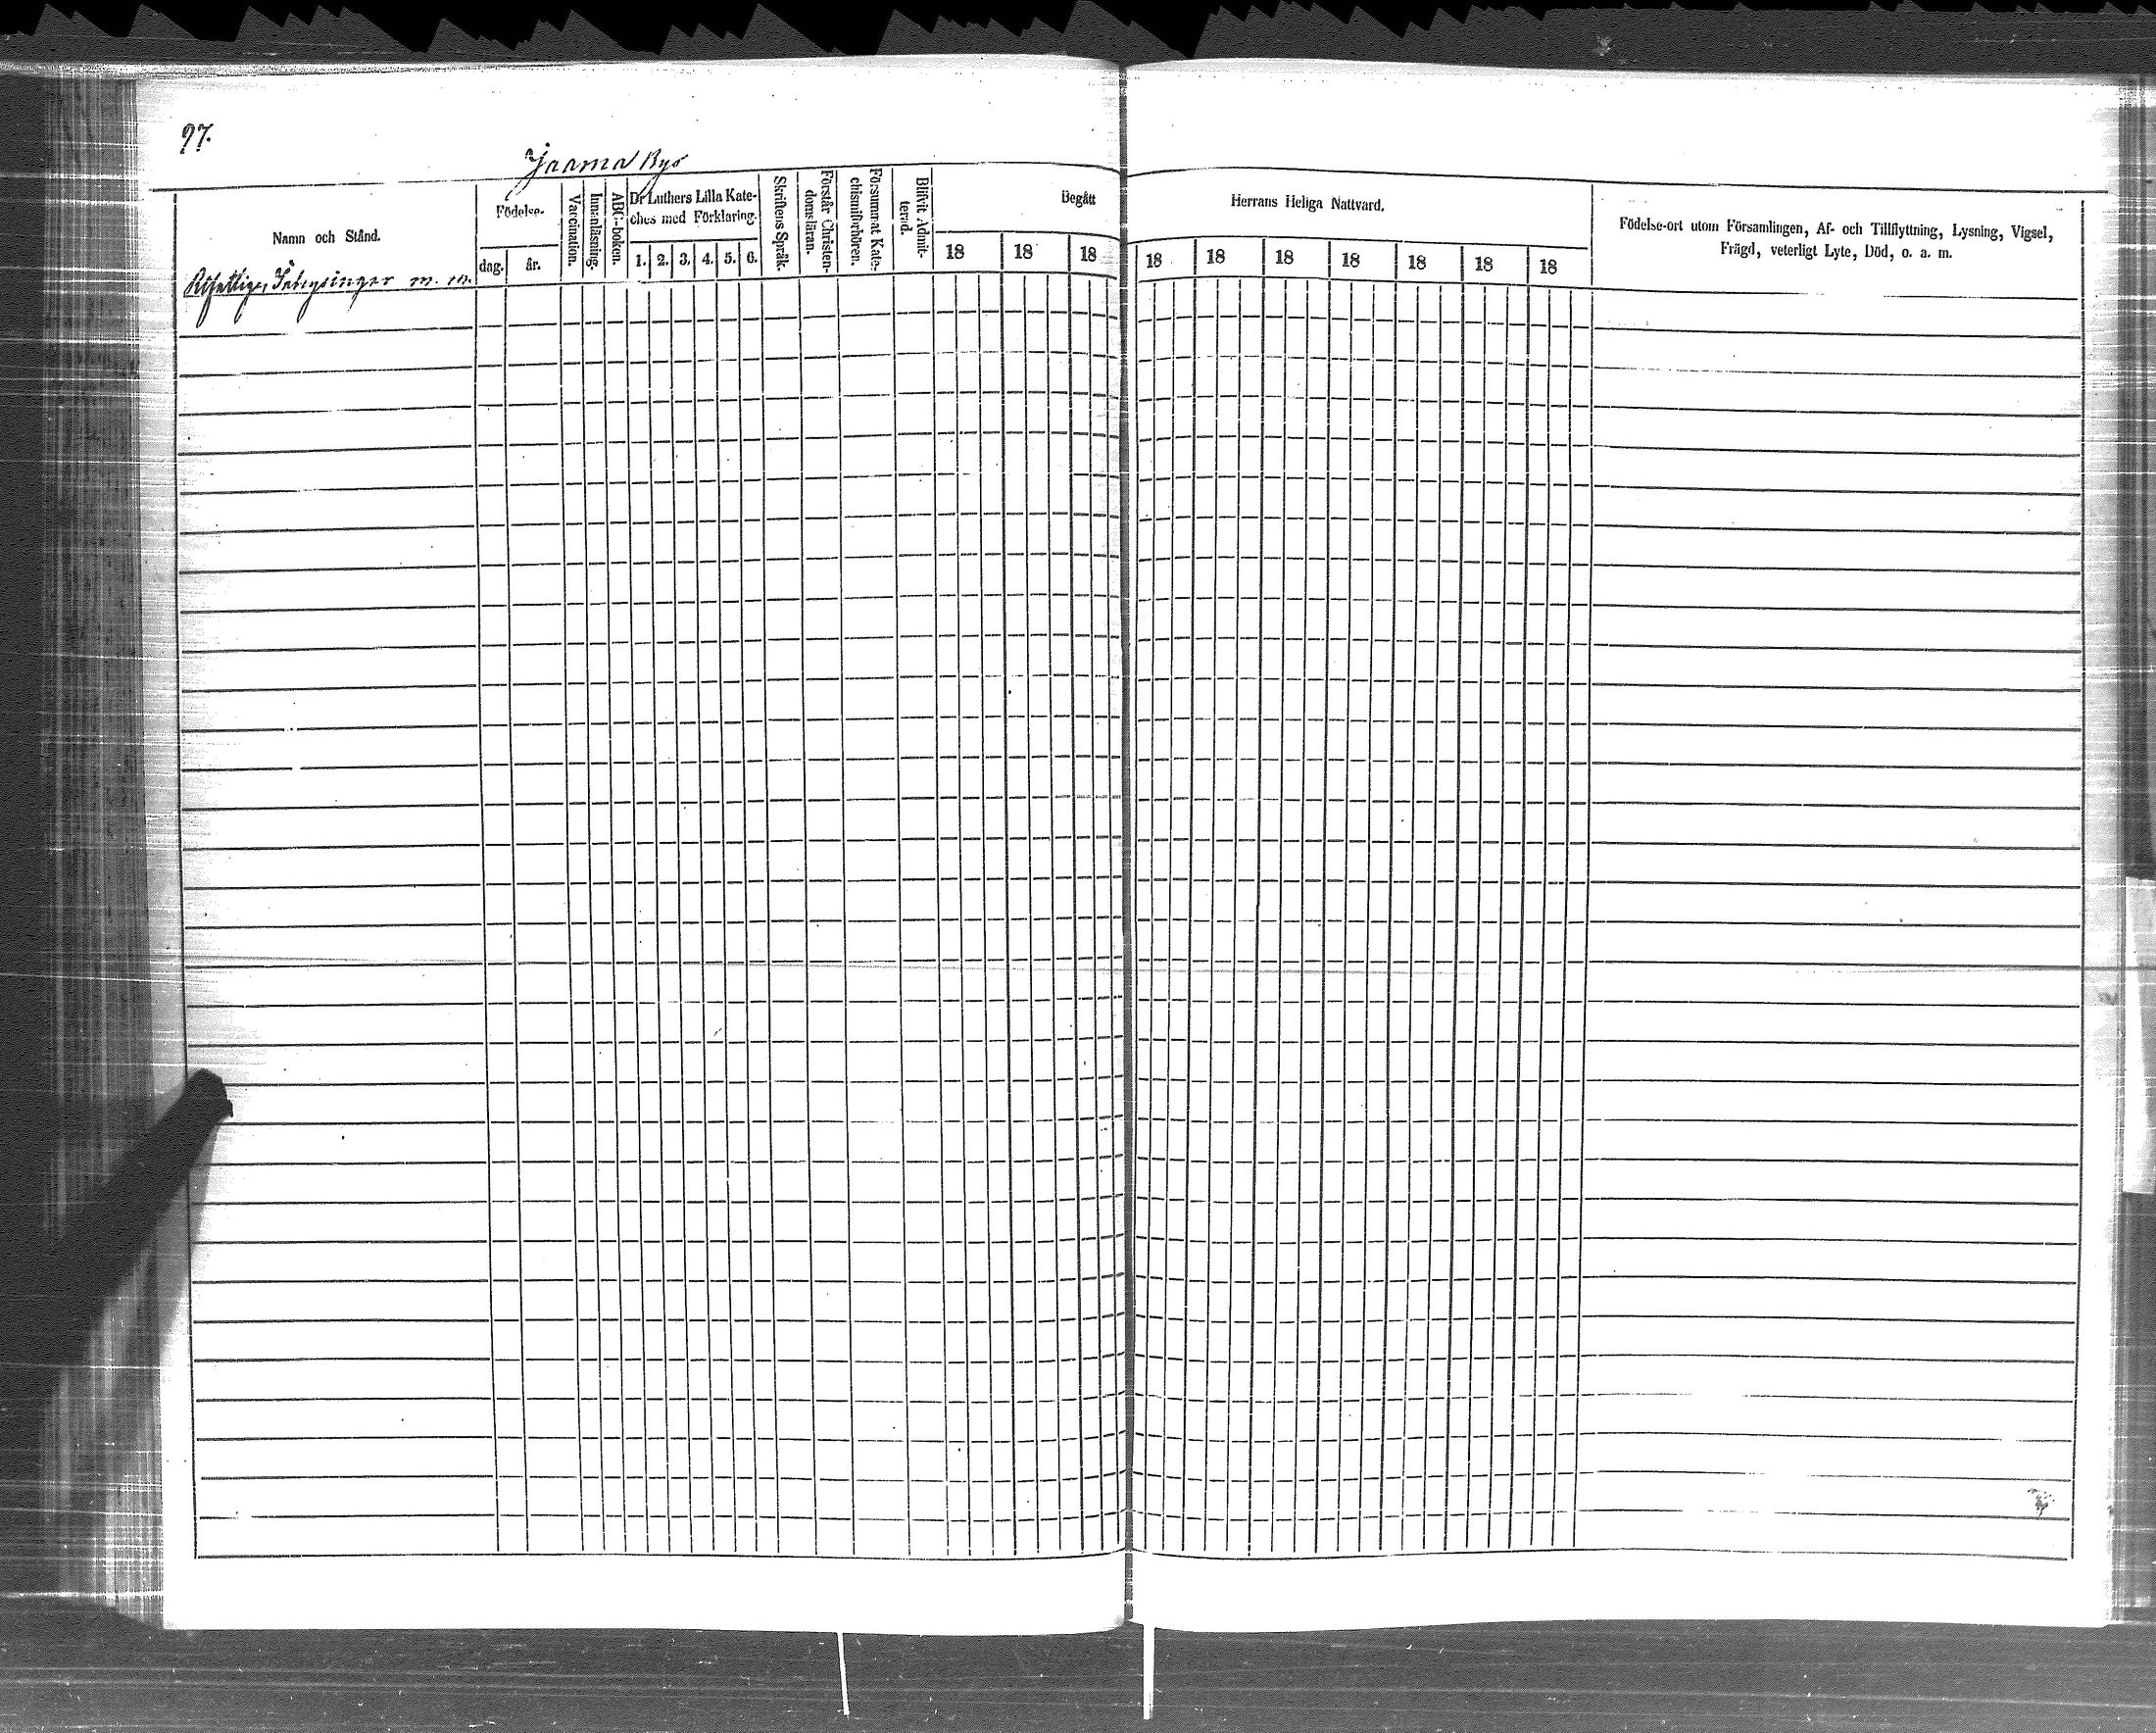 97.
Jaama By
Namn och Stånd.
Födelse-
dag.
år.
Vaccination.
Innanläsning.
ABC-boken.
Dr Luthers Lilla Kate-
ches med Förklaring.
1. 2. 3. 4. 5. 6.
Skriftens Språk.
Förstår Christen-
domsläran.
Försummat Kate-
chismiförhören.
Blifvit Admit-
terad.
Begått
18 18 18
Herrans Heliga Nattvard.
18 18 18 18 18 18 18
Födelse-ort utom Församlingen, Af- och Tillflyttning, Lysning, Vigsel,
Frägd, veterligt Lyte, Död, o. a. m.
m. m.